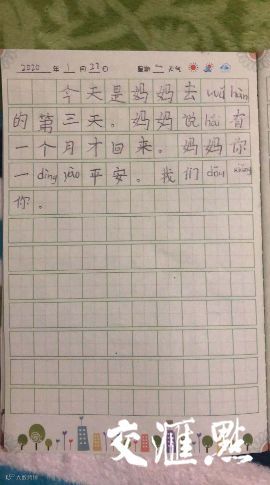 2020 年 1 月 27 日 星期 一 天气
今天是妈妈去wǔ hàn
的第三天。妈妈说hái有
一个月才回来。妈妈你
一dìng yào平安。我们dōu xiǎng
你。
交汇点